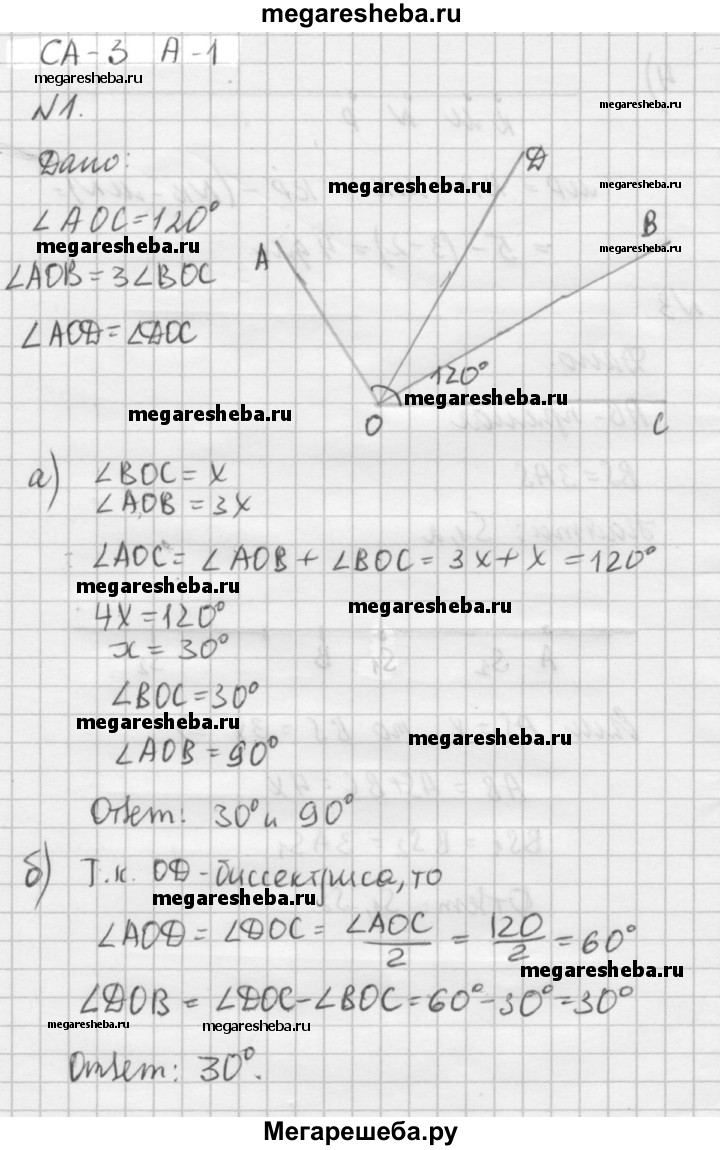 megaresheba.ru
СА-3 А-1
megaresheba.ru
N1.
megaresheba.ru
Дано:
D
megaresheba.ru
megaresheba.ru
∠AOC=120°
B
megaresheba.ru
A
megaresheba.ru
∠AOB=3∠BOC
∠AOD=∠DOC
120°
megaresheba.ru
megaresheba.ru
O
C
а) ∠BOC=x
∠AOB=3x
∠AOC=∠AOB+∠BOC=3x+x=120°
megaresheba.ru
megaresheba.ru
4x=120°
x=30°
∠BOC=30°
megaresheba.ru
megaresheba.ru
∠AOB=90°
Ответ: 30° и 90°
б) Т.к. OD-биссектриса, то
megaresheba.ru
∠AOD=∠DOC=∠AOC/2=120/2=60°
megaresheba.ru
∠DOB=∠DOC-∠BOC=60°-30°=30°
megaresheba.ru
megaresheba.ru
Ответ: 30°.
Мегарешеба.ру